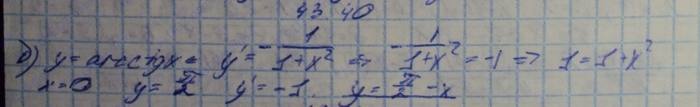 43 40
б) y = arcctgx = y' = - 1/(1+x²) => - 1/(1+x²) = -1 => 1 = 1+x²
x=0 y = π/2 y' = -1 y = π/2 - x